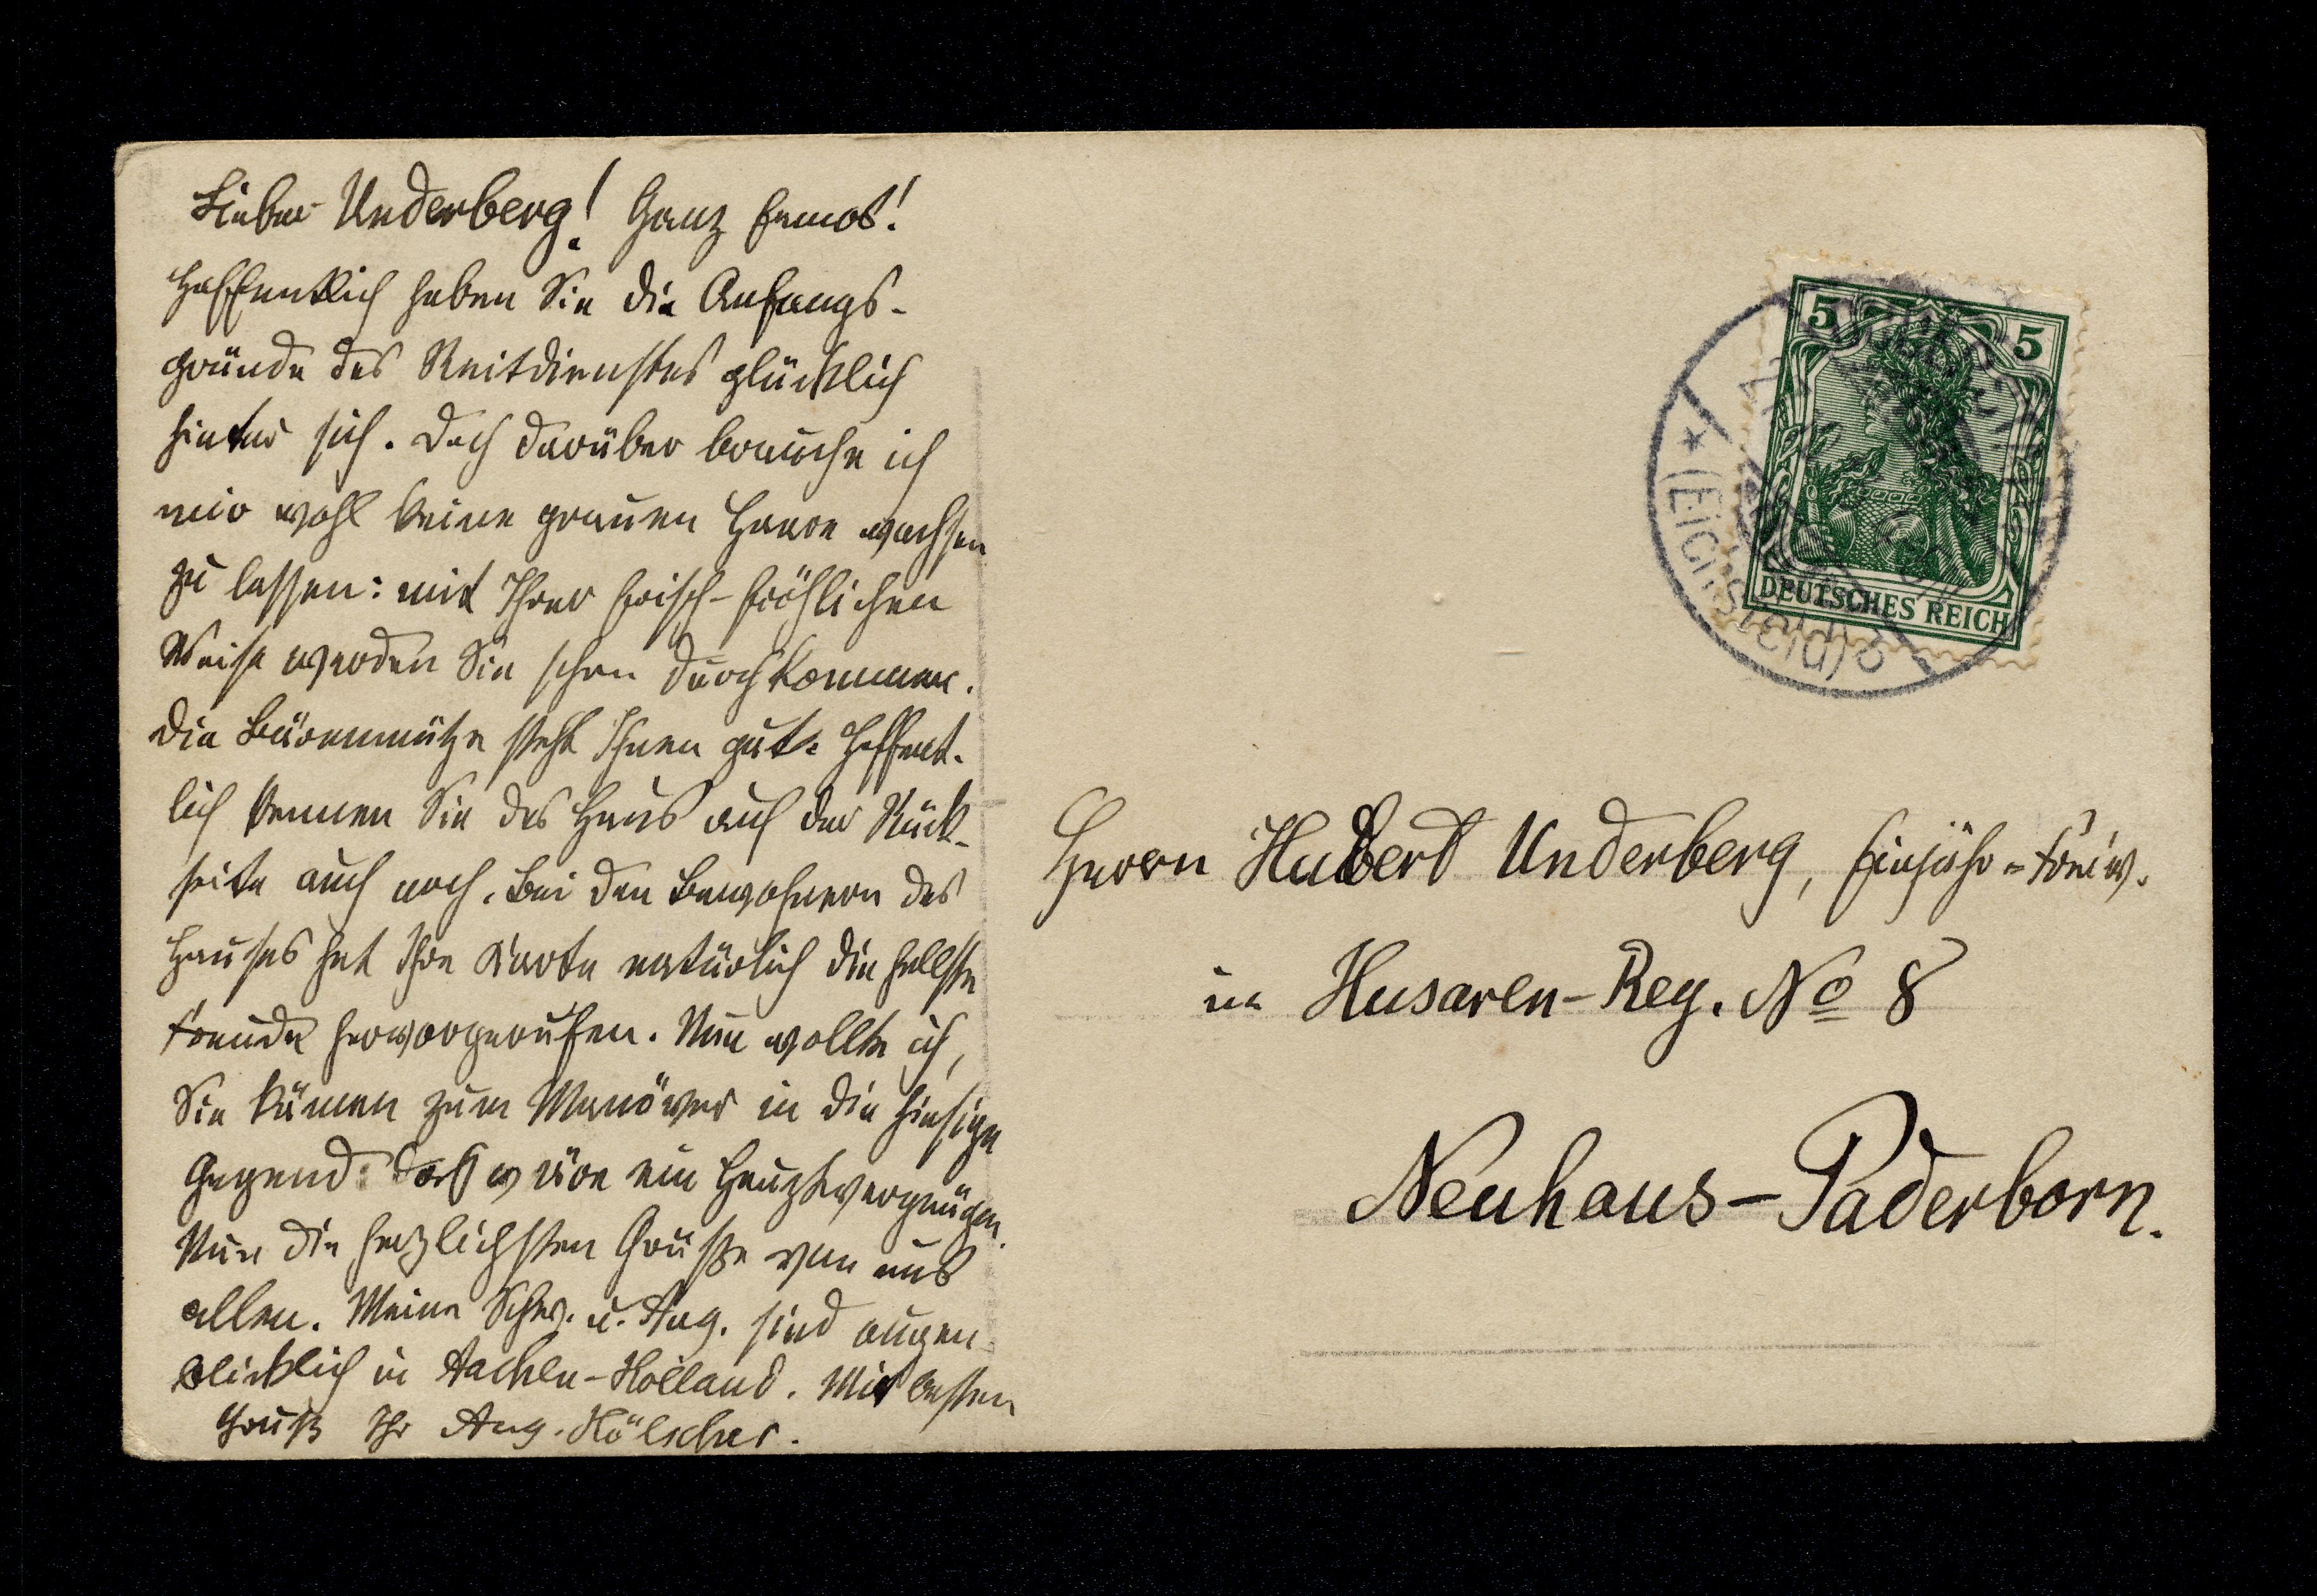 Lieber Underberg! Ganz famos!
Hoffentlich haben Sie die Anfangs-
gründe des Reitdienstes glücklich
hinter sich. Doch darüber brauche ich
mir wohl keine grauen Haare wachsen
zu lassen: mit Ihrer frisch-fröhlichen
Weise werden Sie schon durchkommen.
Die Bärenmütze steht Ihnen gut. Hoffent-
lich kennen Sie das Haus auf der Rück-
seite auch noch. Bei den Bewohnern des
Hauses hat Ihre Karte natürlich die hellste
Freude hervorgerufen. Nun wollte ich,
Sie kämen zum Manöver in die hiesige
Gegend: das wäre ein Hauptvergnügen.
Nun die herzlichsten Grüße von uns
allen. Meine Schw. u. Aug. sind augen-
blicklich in Aachen-Holland. Mit besten
Gruß Ihr Aug. Hölscher.
5 5
DEUTSCHES REICH
* (Eichsfeld)
Herrn Hubert Underberg, Einjähr-Freiw.
im Husaren-Reg. No 8
Neuhaus-Paderborn.